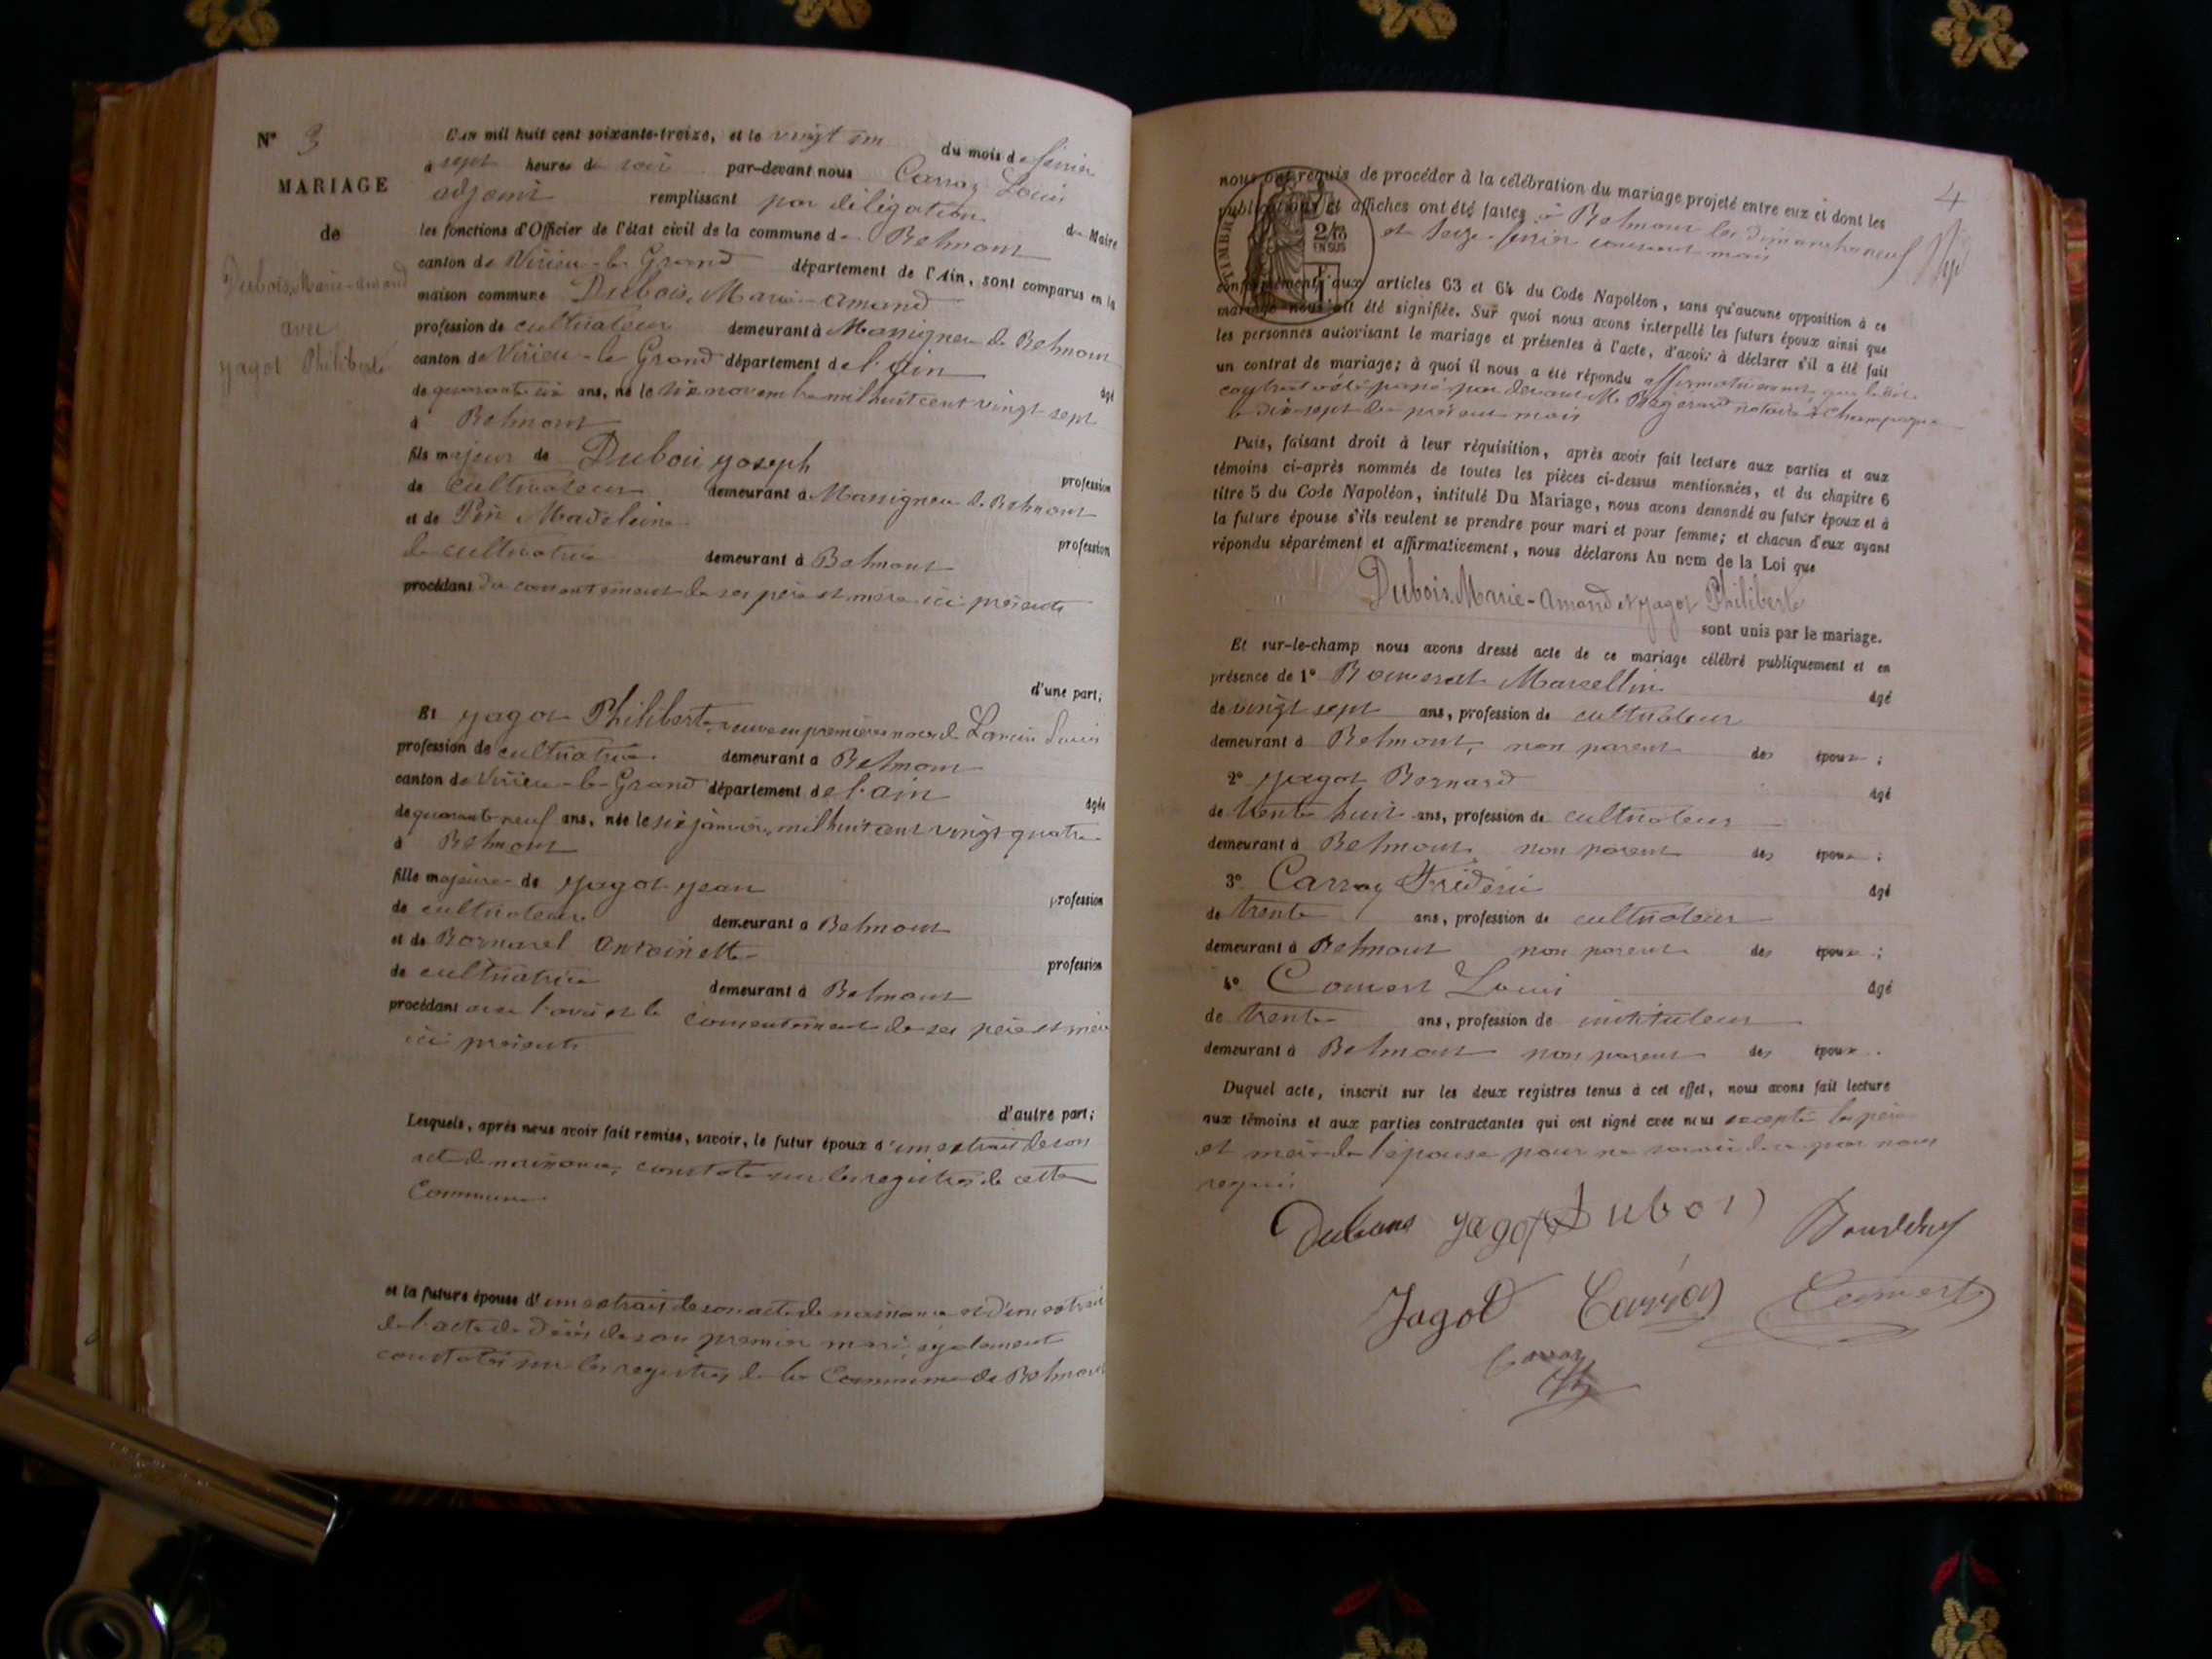 N° 3
MARIAGE
de
Dubois, Marie-amand
avec
yagot Philiberte
L'an mil huit cent soixante-treize, et le vingt un du mois de février
à sept heures du soir par-devant nous Carraz Louis
adjoint remplissant par délégation du Maire
les fonctions d'Officier de l'état civil de la commune de Belmont
canton de Virieu-le Grand département de l'Ain, sont comparus en la
maison commune Dubois, Marie-amand
profession de cultivateur demeurant à Massigneu de Belmont
canton de Virieu-le Grand département de l'ain
âgé
de quarante six ans, né le six novembre mil huit cent vingt-sept
à Belmont
fils majeur de Dubois yoseph
profession
de cultivateur demeurant à Massigneu de Belmont
et de Pin Madeleine
profession
de cultivatrice demeurant à Belmont
procédant du consentement de ses père et mère ici présents
d'une part;
Et yagot Philiberte, veuve en premières noces de Louis
profession de cultivatrice demeurant à Belmont
canton de Virieu-le-Grand département de l'ain
âgée
de quarante-neuf ans, née le six janvier mil huit cent vingt quatre
à Belmont
fille majeure de yagot yean
profession
de cultivateur demeurant à Belmont
et de Bornarel antoinette
profession
de cultivatrice demeurant à Belmont
procédant avec l'avis et le consentement de ses père et mère
ici présents
d'autre part;
Lesquels, après nous avoir fait remise, savoir, le futur époux d'un extrait de son
acte de naissance, constaté sur les registres de cette
Commune.
et la future épouse d'un extrait de son acte de naissance et d'un extrait
de l'acte de décès de son premier mari, également
constatés sur les registres de la Commune de Belmont
4
nous ont requis de procéder à la célébration du mariage projeté entre eux et dont les
publications et affiches ont été faites à Belmont les dimanches neuf
et seize février courant mois
TIMBRE
2/10
EN SUS
conformément aux articles 63 et 64 du Code Napoléon, sans qu'aucune opposition à ce
mariage nous ait été signifiée. Sur quoi nous avons interpellé les futurs époux ainsi que
les personnes autorisant le mariage et présentes à l'acte, d'avoir à déclarer s'il a été fait
un contrat de mariage; à quoi il nous a été répondu affirmativement que le dit
contrat a été passé par devant Me notaire à Champagne
le dix-sept du présent mois
Puis, faisant droit à leur réquisition, après avoir fait lecture aux parties et aux
témoins ci-après nommés de toutes les pièces ci-dessus mentionnées, et du chapitre 6
titre 5 du Code Napoléon, intitulé Du Mariage, nous avons demandé au futur époux et à
la future épouse s'ils veulent se prendre pour mari et pour femme; et chacun d'eux ayant
répondu séparément et affirmativement, nous déclarons Au nom de la Loi que
Dubois, Marie-amand et yagot Philiberte
sont unis par le mariage.
Et sur-le-champ nous avons dressé acte de ce mariage célébré publiquement et en
présence de 1° Marcellin
âgé
de vingt sept ans, profession de cultivateur
demeurant à Belmont, non parent des époux;
2° yagot Bernard
âgé
de trente huit ans, profession de cultivateur
demeurant à Belmont, non parent des époux;
3° Carraz Frédéric
âgé
de trente ans, profession de cultivateur
demeurant à Belmont non parent des époux;
4° Convert Louis
âgé
de trente ans, profession de instituteur
demeurant à Belmont non parent des époux.
Duquel acte, inscrit sur les deux registres tenus à cet effet, nous avons fait lecture
aux témoins et aux parties contractantes qui ont signé avec nous excepté les père
et mère de l'épouse pour ne savoir de ce par nous
requis
Dubois yagot Dubois
Jagot Carraz Convert
Carraz